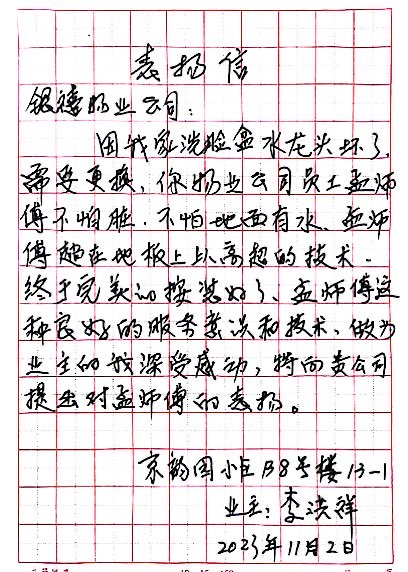 表扬信
银禧物业公司:
因我家洗脸盆水龙头坏了,
需要更换,你物业公司员工孟师
傅不怕脏.不怕地面有水.孟师
傅趴在地板上以高超的技术.
终于完美的换装好了、孟师傅这
种良好的服务意识和技术、做为
业主的我深受感动,特向贵公司
提出对孟师傅的表扬。
京韵园小区B8号楼13-1
业主:李洪祥
2023年11月2日